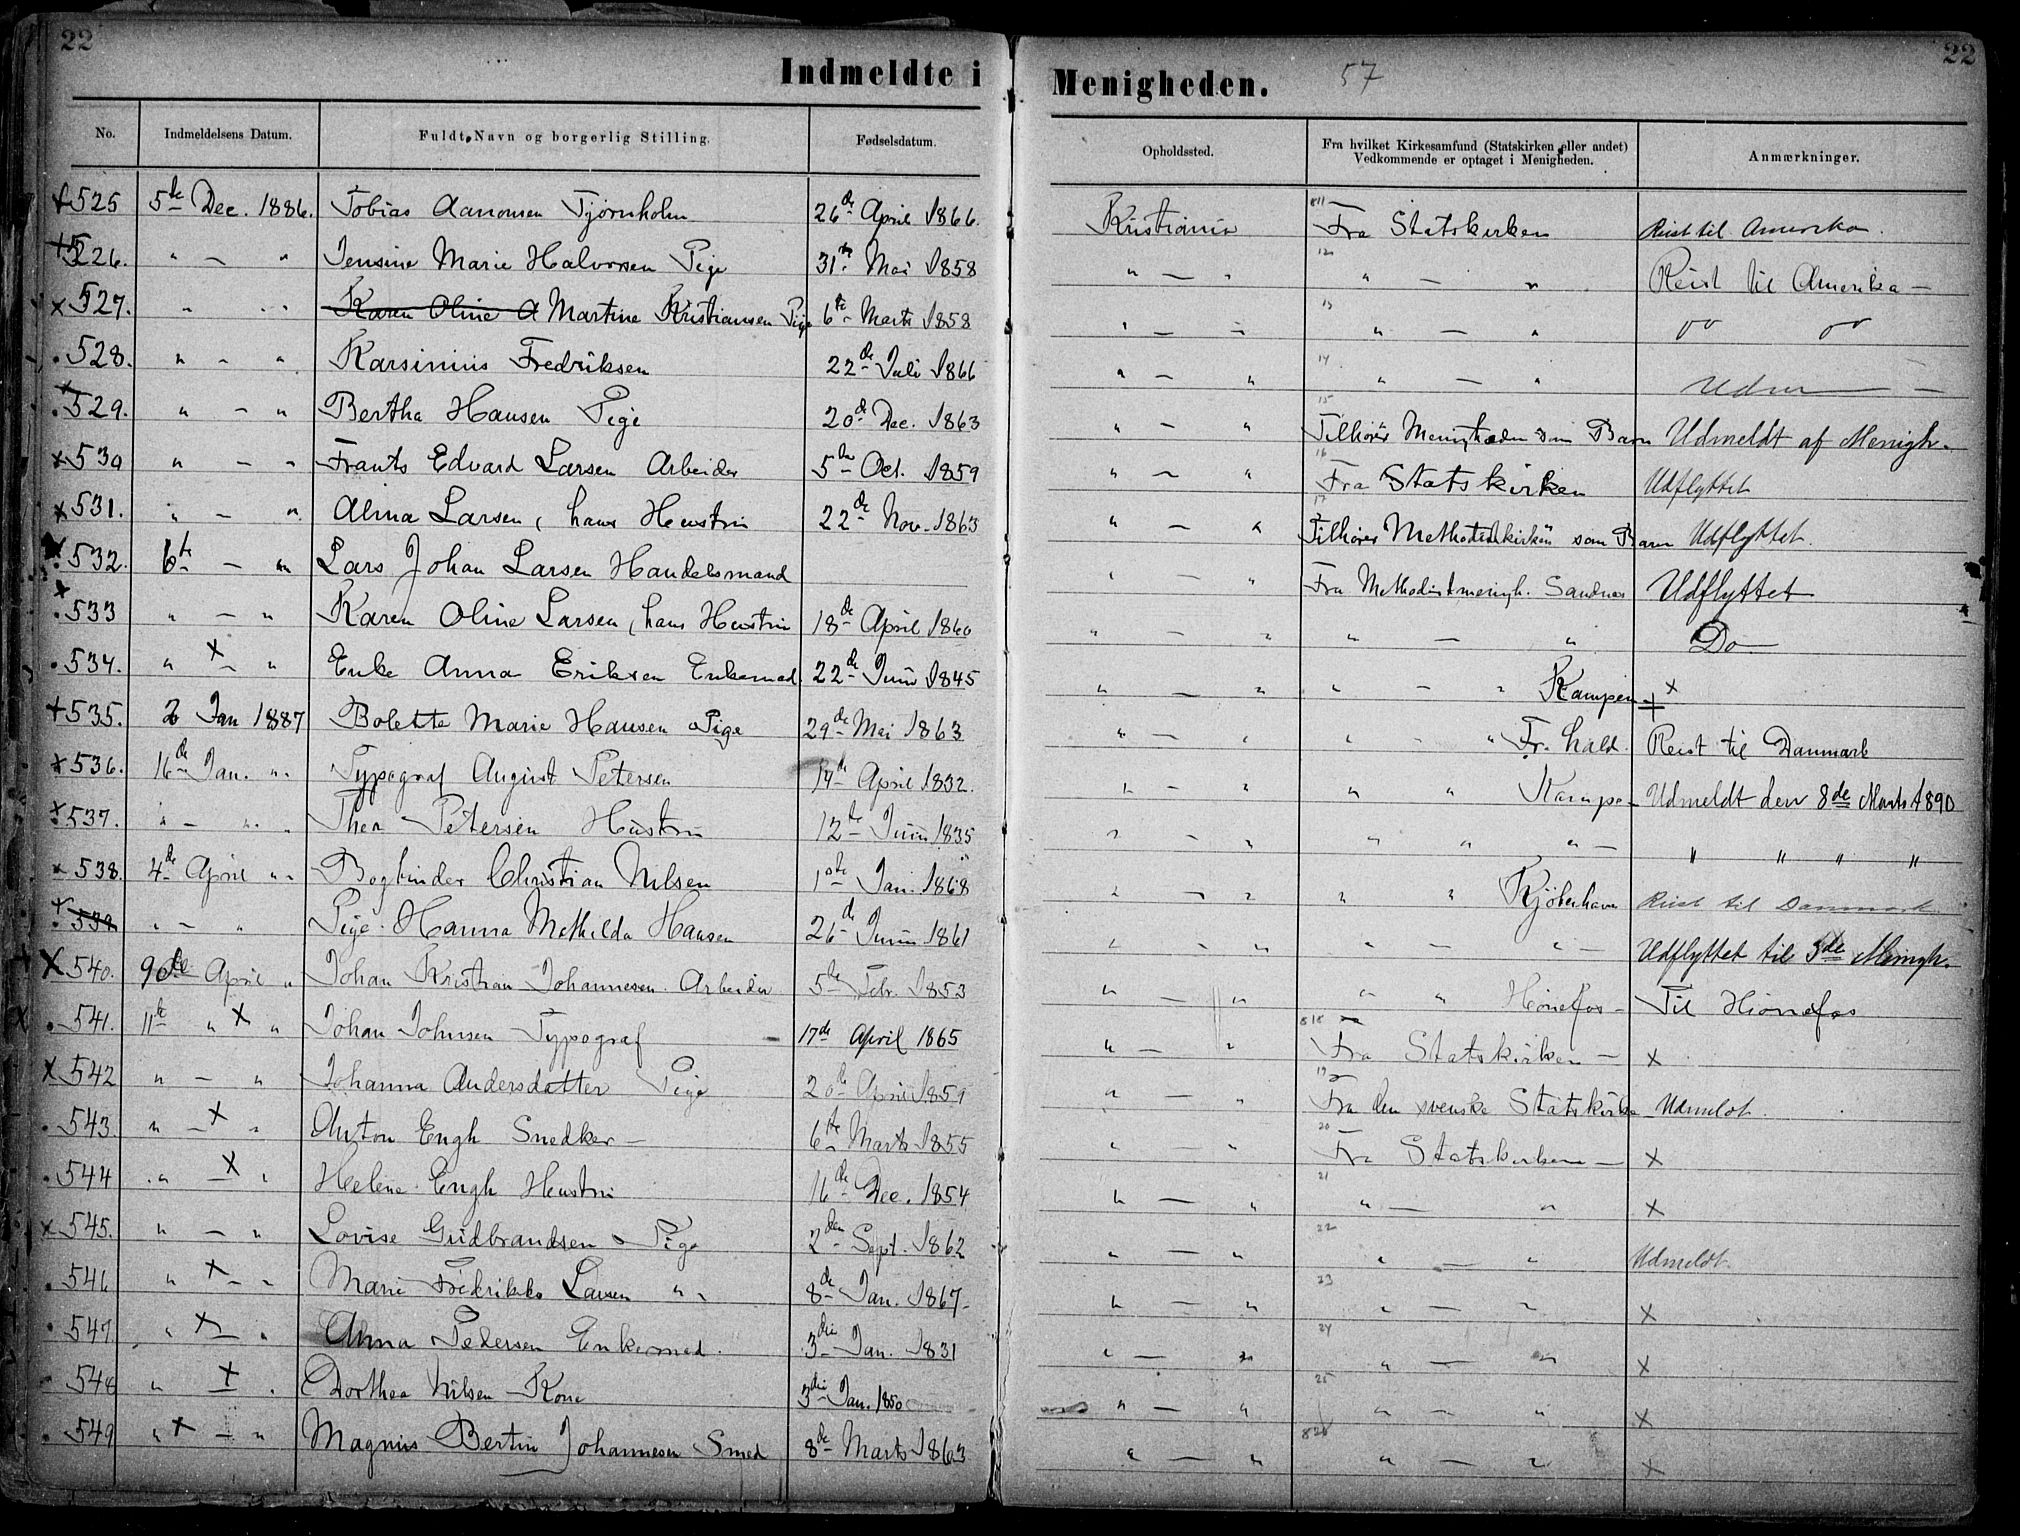 22
22
Indmeldte i Menigheden. 57
No. Indmeldelsens Datum. Fuldt Navn og borgerlig Stilling. Fødselsdatum. Opholdssted. Fra hvilket Kirkesamfund (Statskirken eller andet) Vedkommende er optaget i Menigheden. Anmærkninger.
+ 525 5te Dec. 1886. Tobias Aanonsen Tjørnholm 26de April 1866. Kristiania 811 Fra Statskirken Reist til Amerika.
+ 526. " - " Jensine Marie Halvorsen Pige 31te Mai 1858 " — " 12 " — " Reist til Amerika —
x 527. " " " Karen Oline A Martine Kristiansen Pige 6te Marts 1858 " — " 13 " — " do do
. 528. " - " Karsinius Fredriksen 22de Juli 1866 " — " 14 " — " —
x 529. " - " Bertha Hansen Pige 20de Dec. 1863 " — " 15 Tilhører Menigheden som Barn Udmeldt af Menigh.
x 530 " - " Frants Edvard Larsen Arbeider 5te Oct. 1859 " — " 16 Fra Statskirken Udflyttet
x 531. " - " Alma Larsen, hans Hustru 22de Nov. 1863 " — " 17 Tilhører Methodistkirken som Barn Udflyttet.
x 532. 6te - " Lars Johan Larsen Handelsmand " — " Fra Methodistmenigh. Sandnes Udflyttet
x 533 " - " Karen Oline Larsen, hans Hustru 18de April 1860 " — " " — " Do
. 534. " x " Enke Anna Eriksen Enkemad 22de Juni 1845 " — " " — " Kampen + x
+ 535. 2 Jan 1887 Bolette Marie Hansen Pige 29de Mai 1863 " — " " — " Fr. hald. Reist til Danmark
x 536. 16de Jan. " Typograf August Petersen 14de April 1832. " — " " " Kampe — Udmeldt den 8de Marts 1890
x 537. " - " " Thea Petersen Hustru 12te Juni 1835 " — " " " " — " " " "
x 538. 4de April " " Bogbinder Christian Nilsen 1ste Jan. 1868 " — " " " Kjøbenhavn Reist til Danmark
+ 539 " - " Pige Hanna Mathilda Hansen 26de Juni 1861 " — " " — " — Udflyttet til 3de Menigh.
X 540. 9de April " Johan Kristian Johannesen Arbeider 5te Febr. 1853 " — " " " Hønefos — Til Hønefos
x . 541. 11te " x " Johan Johnsen Typograf — 17de April 1865 " — " 818 Fra Statskirken — x
x 542 " - " Johanna Andersdatter Pige 20de April 1859 " — " 19 Fra den svenske Statskirke Udmeldt.
. 543. " x " Anton Engh Snedker — 6te Marts 1855 " — " 20 Fra Statskirken — x
. 544 " x " Helene Engh Hustru 16de Dec. 1854 " — " 21 " — " x
x 545. " - " Lovise Gudbrandsen Pige 2den Sept. 1862 " — " 22 " — " Udmeldt.
. 546 " x " Marie Fredrikke Larsen " " 8de Jan. 1867. " — " 23 " — " x
. 547 " x " Anna Pedersen Enkemad. 3die Jan. 1831 " — " 24 " — " x
. 548 " x " Dorthea Nilsen Kone 3die Jan. 1850 " — " 25 " — " x
. 549 " x - " Magnus Bertin Johannesen Smed 8de Marts 1863 " — " 826 " — " x